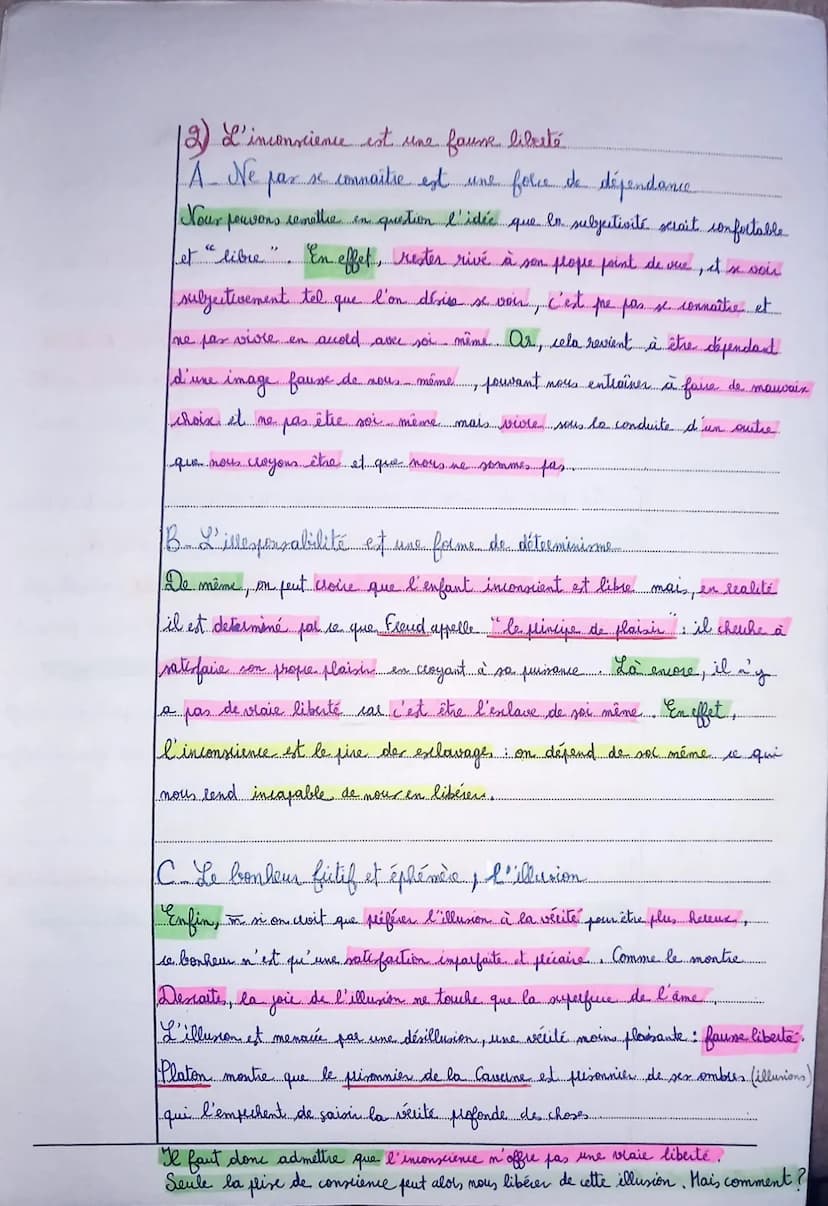 2) L'inconscience est une fausse liberté
A_ Ne pas se connaître est une force de dépendance
Nous pouvons remettre en question l'idée que la subjectivité serait confortable
et "libre". En effet, rester rivé à son propre point de vue, et se voir
subjectivement tel que l'on désire se voir, c'est ne pas se connaître et
ne pas vivre en accord avec soi-même. Or, cela revient à être dépendant
d'une image fausse de nous-même, pouvant nous entraîner à faire de mauvais
choix et ne pas être soi-même mais vivre sous la conduite d'un autre
que nous croyons être et que nous ne sommes pas.
B_ L'irresponsabilité est une forme de déterminisme
De même, on peut croire que l'enfant inconscient est libre mais, en réalité
il est determiné par ce que Freud appelle "le principe de plaisir" : il cherche à
satisfaire son propre plaisir en croyant à sa puissance. Là encore, il n'y
a pas de vraie liberté car c'est être l'esclave de soi même. En effet,
l'inconscience est le pire des esclavages : on dépend de soi même ce qui
nous rend incapable de nous en libérer.
C_ Le bonheur futif et éphémère, l'illusion
Enfin, m̄ si on croit que préférer l'illusion à la vérité pour être plus heureux,
ce bonheur n'est qu'une satisfaction imparfaite et précaire. Comme le montre
Descartes, la joie de l'illusion ne touche que la superficie de l'âme.
L'illusion est menacée par une désillusion, une vérité moins plaisante : fausse liberté.
Platon montre que le prisonnier de la Caverne est prisonnier de ses ombres (illusions)
qui l'empechent de saisir la vérité profonde des choses
Il faut donc admettre que l'inconscience n'offre pas une vraie liberté.
Seule la prise de conscience peut alors nous libérer de cette illusion. Mais comment ?